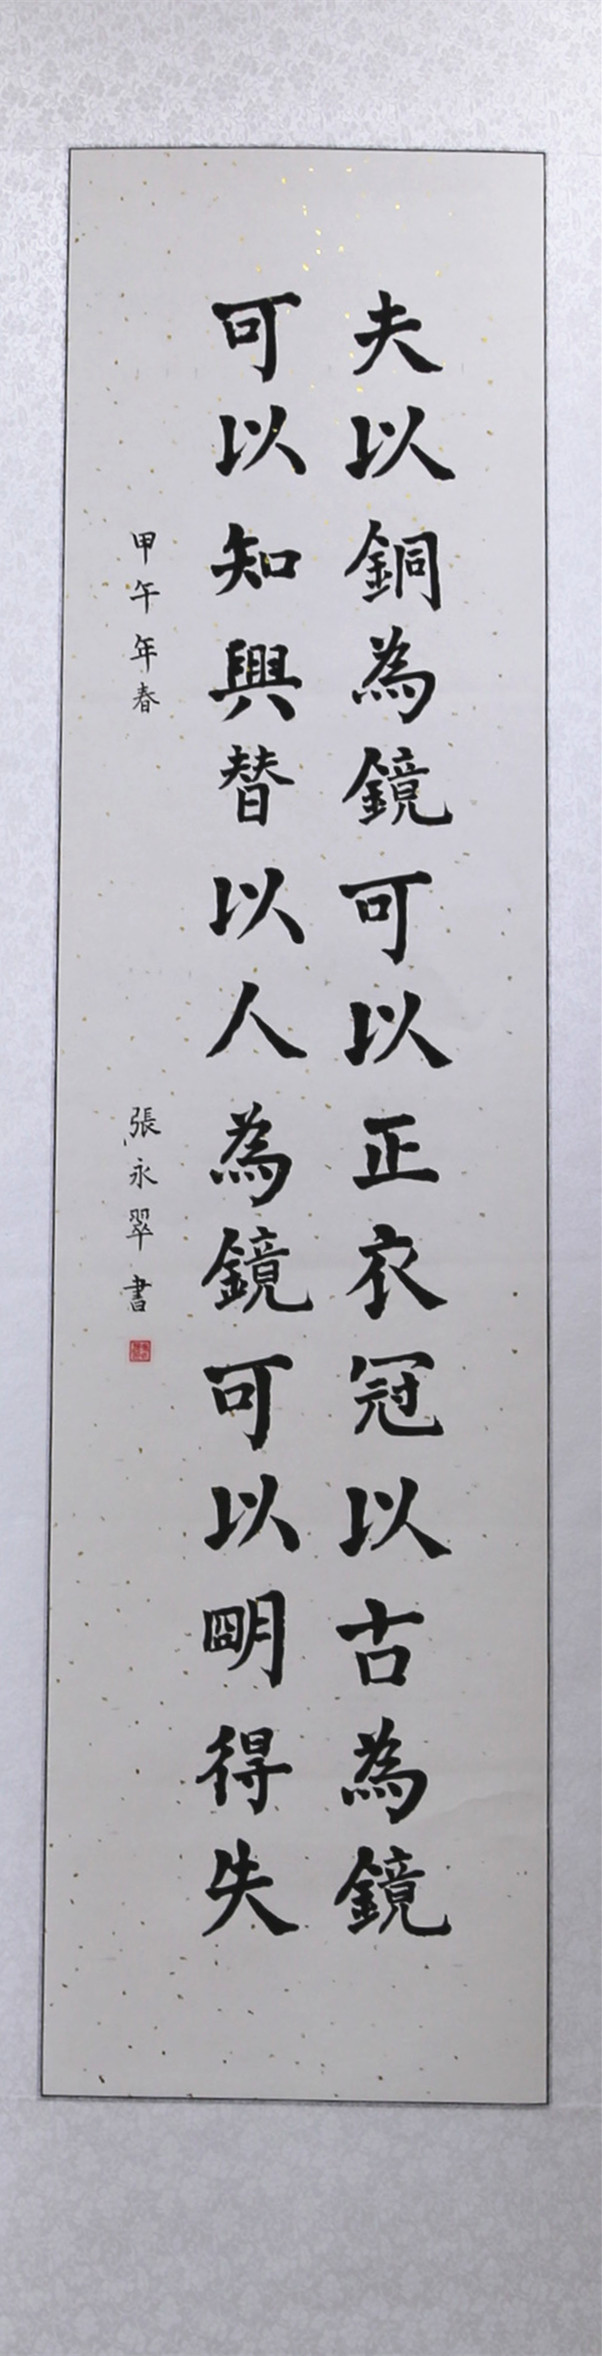 夫以銅為鏡可以正衣冠以古為鏡
可以知興替以人為鏡可以明得失
甲午年春
張永翠書